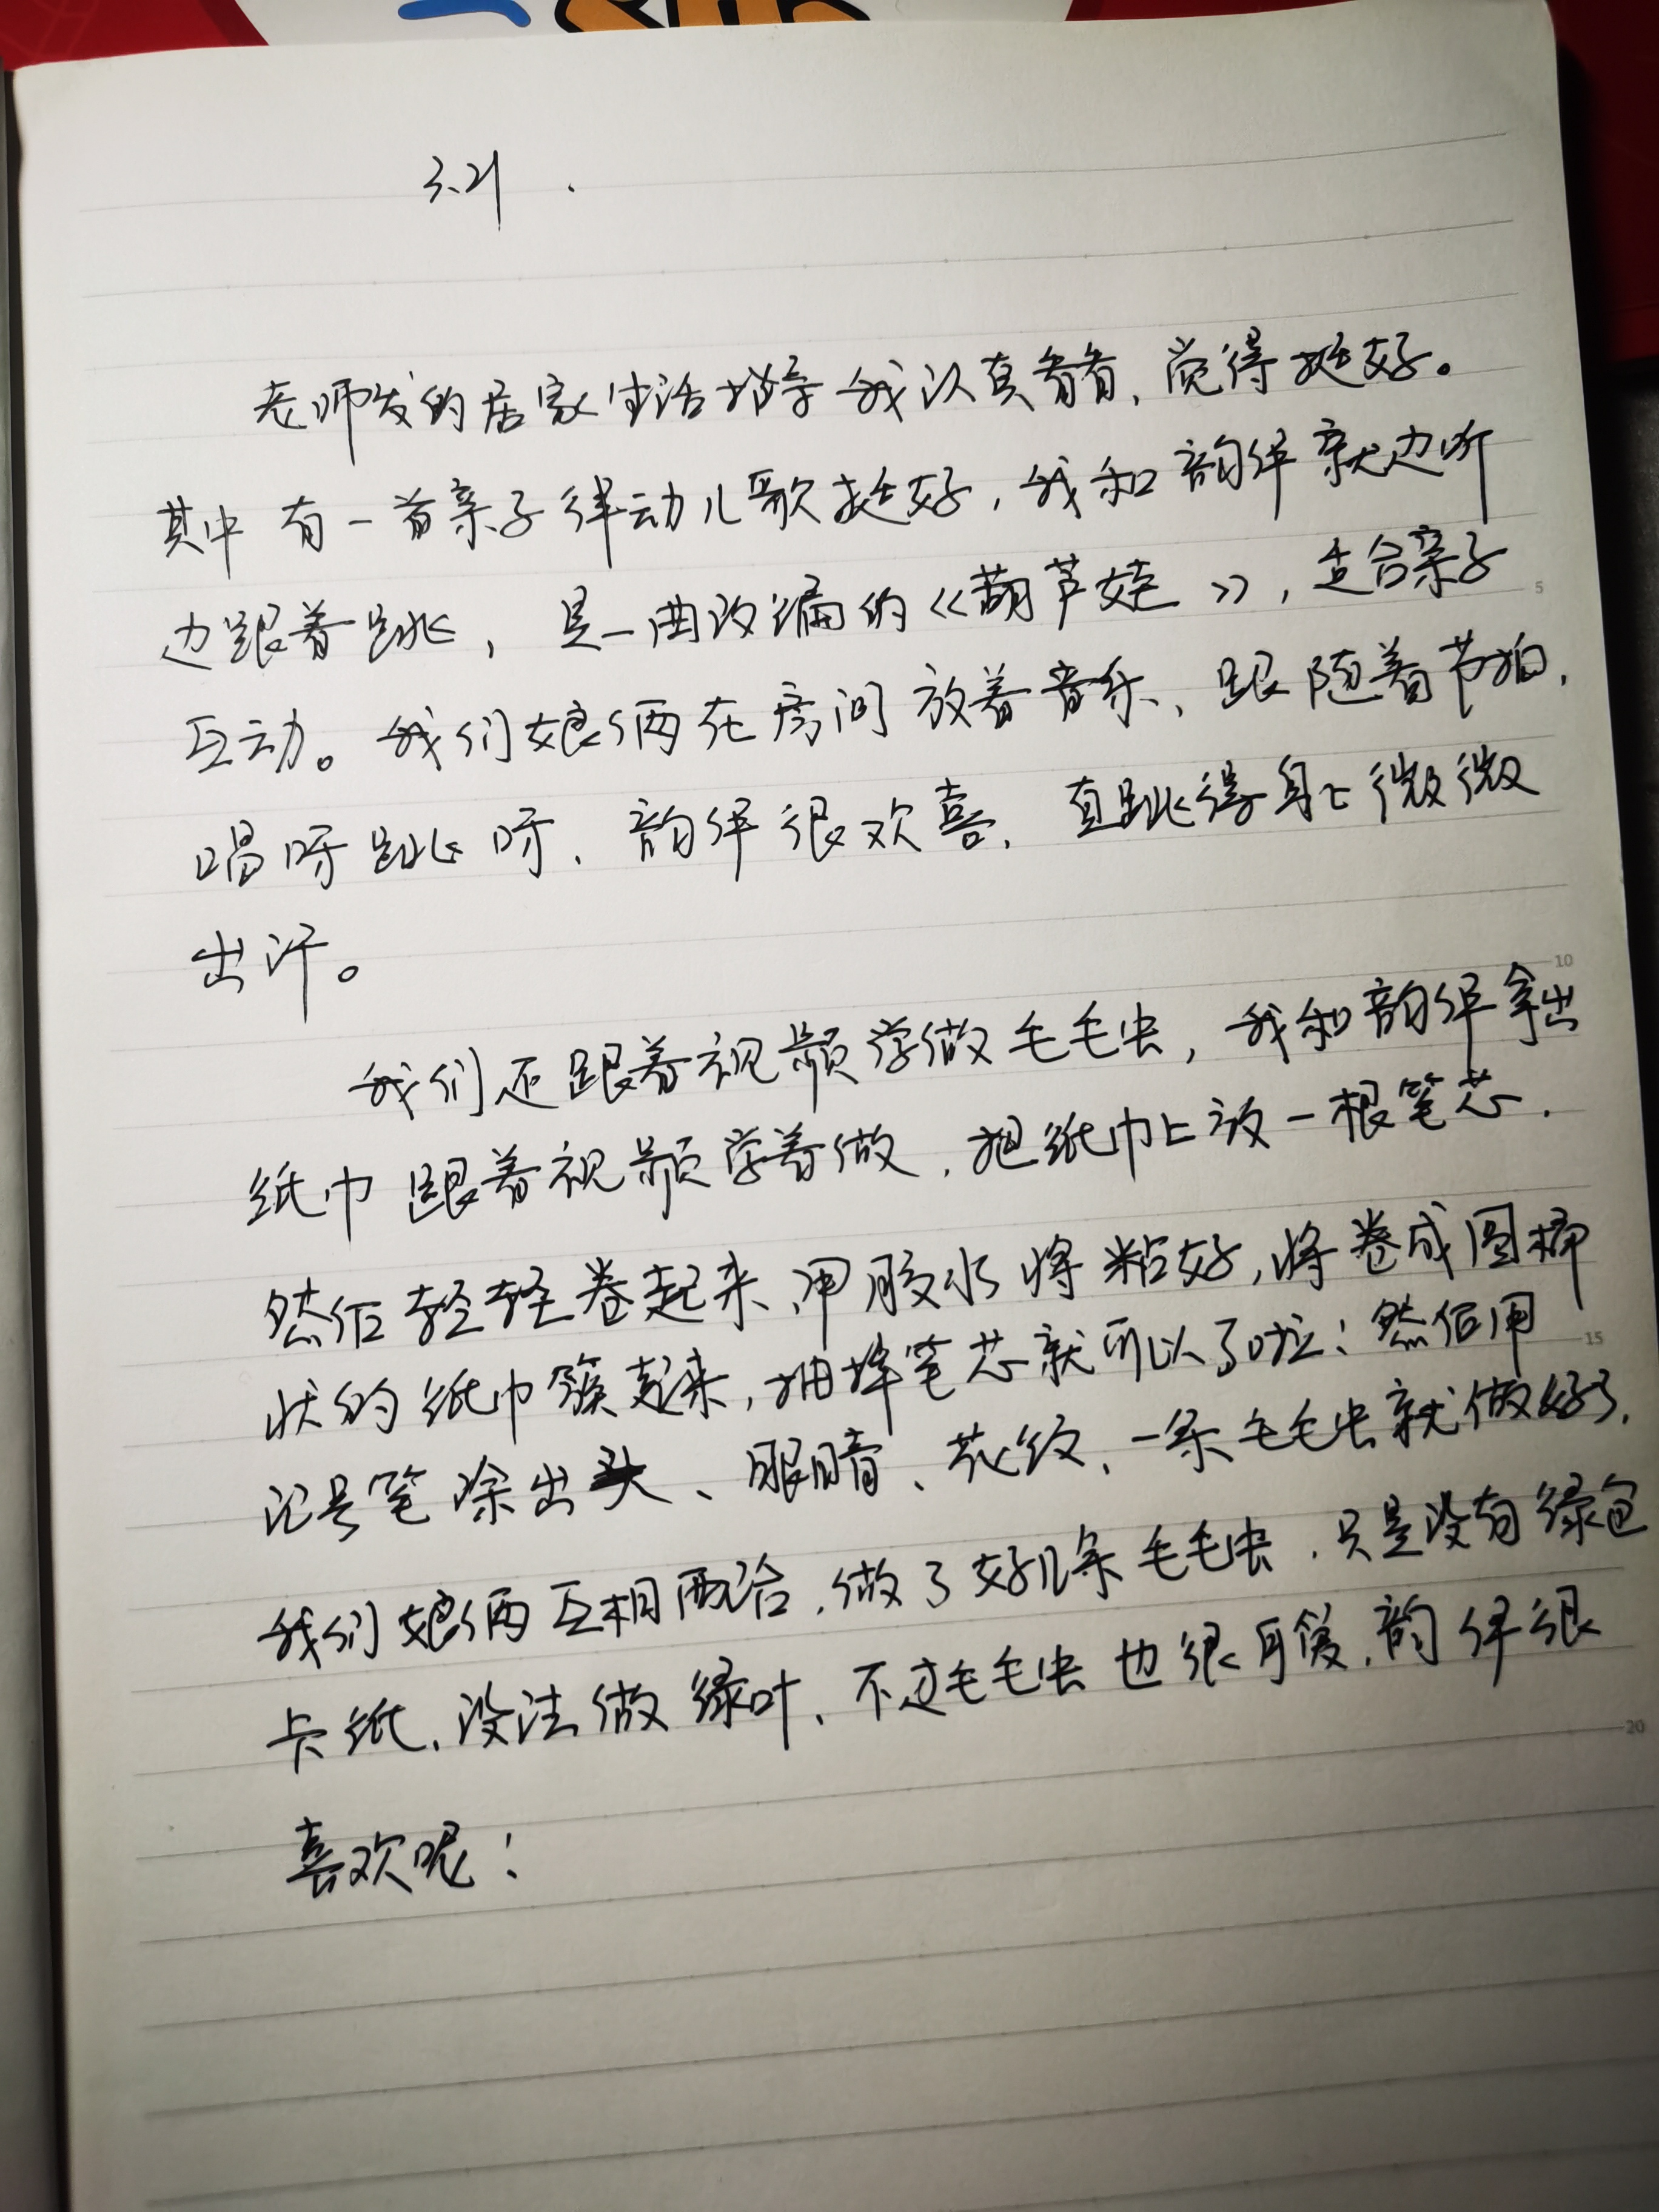 3.21.
老师发的居家生活指导我认真看看,觉得挺好。
其中有一首亲子律动儿歌挺好,我和韵伊就边听
边跟着跳,是一曲改编的《葫芦娃》,适合亲子
互动。我们娘俩在房间放着音乐、跟随着节拍,
唱呀跳呀、韵伊很欢喜,直跳得身上微微
出汗。
我们还跟着视频学做毛毛虫,我和韵伊拿出
纸巾跟着视频学着做,把纸巾上放一根笔芯.
然后轻轻卷起来、用胶水将粘好,将卷成圆桶
状的纸巾簇起来,抽掉笔芯就可以了啦!然后用
记号笔涂出头、眼睛、花纹、一条毛毛虫就做好了.
我们娘俩互相配合,做了好几条毛毛虫.只是没有绿色
卡纸、没法做绿叶、不过毛毛虫也很,韵伊很
喜欢呢!
5
10
15
20